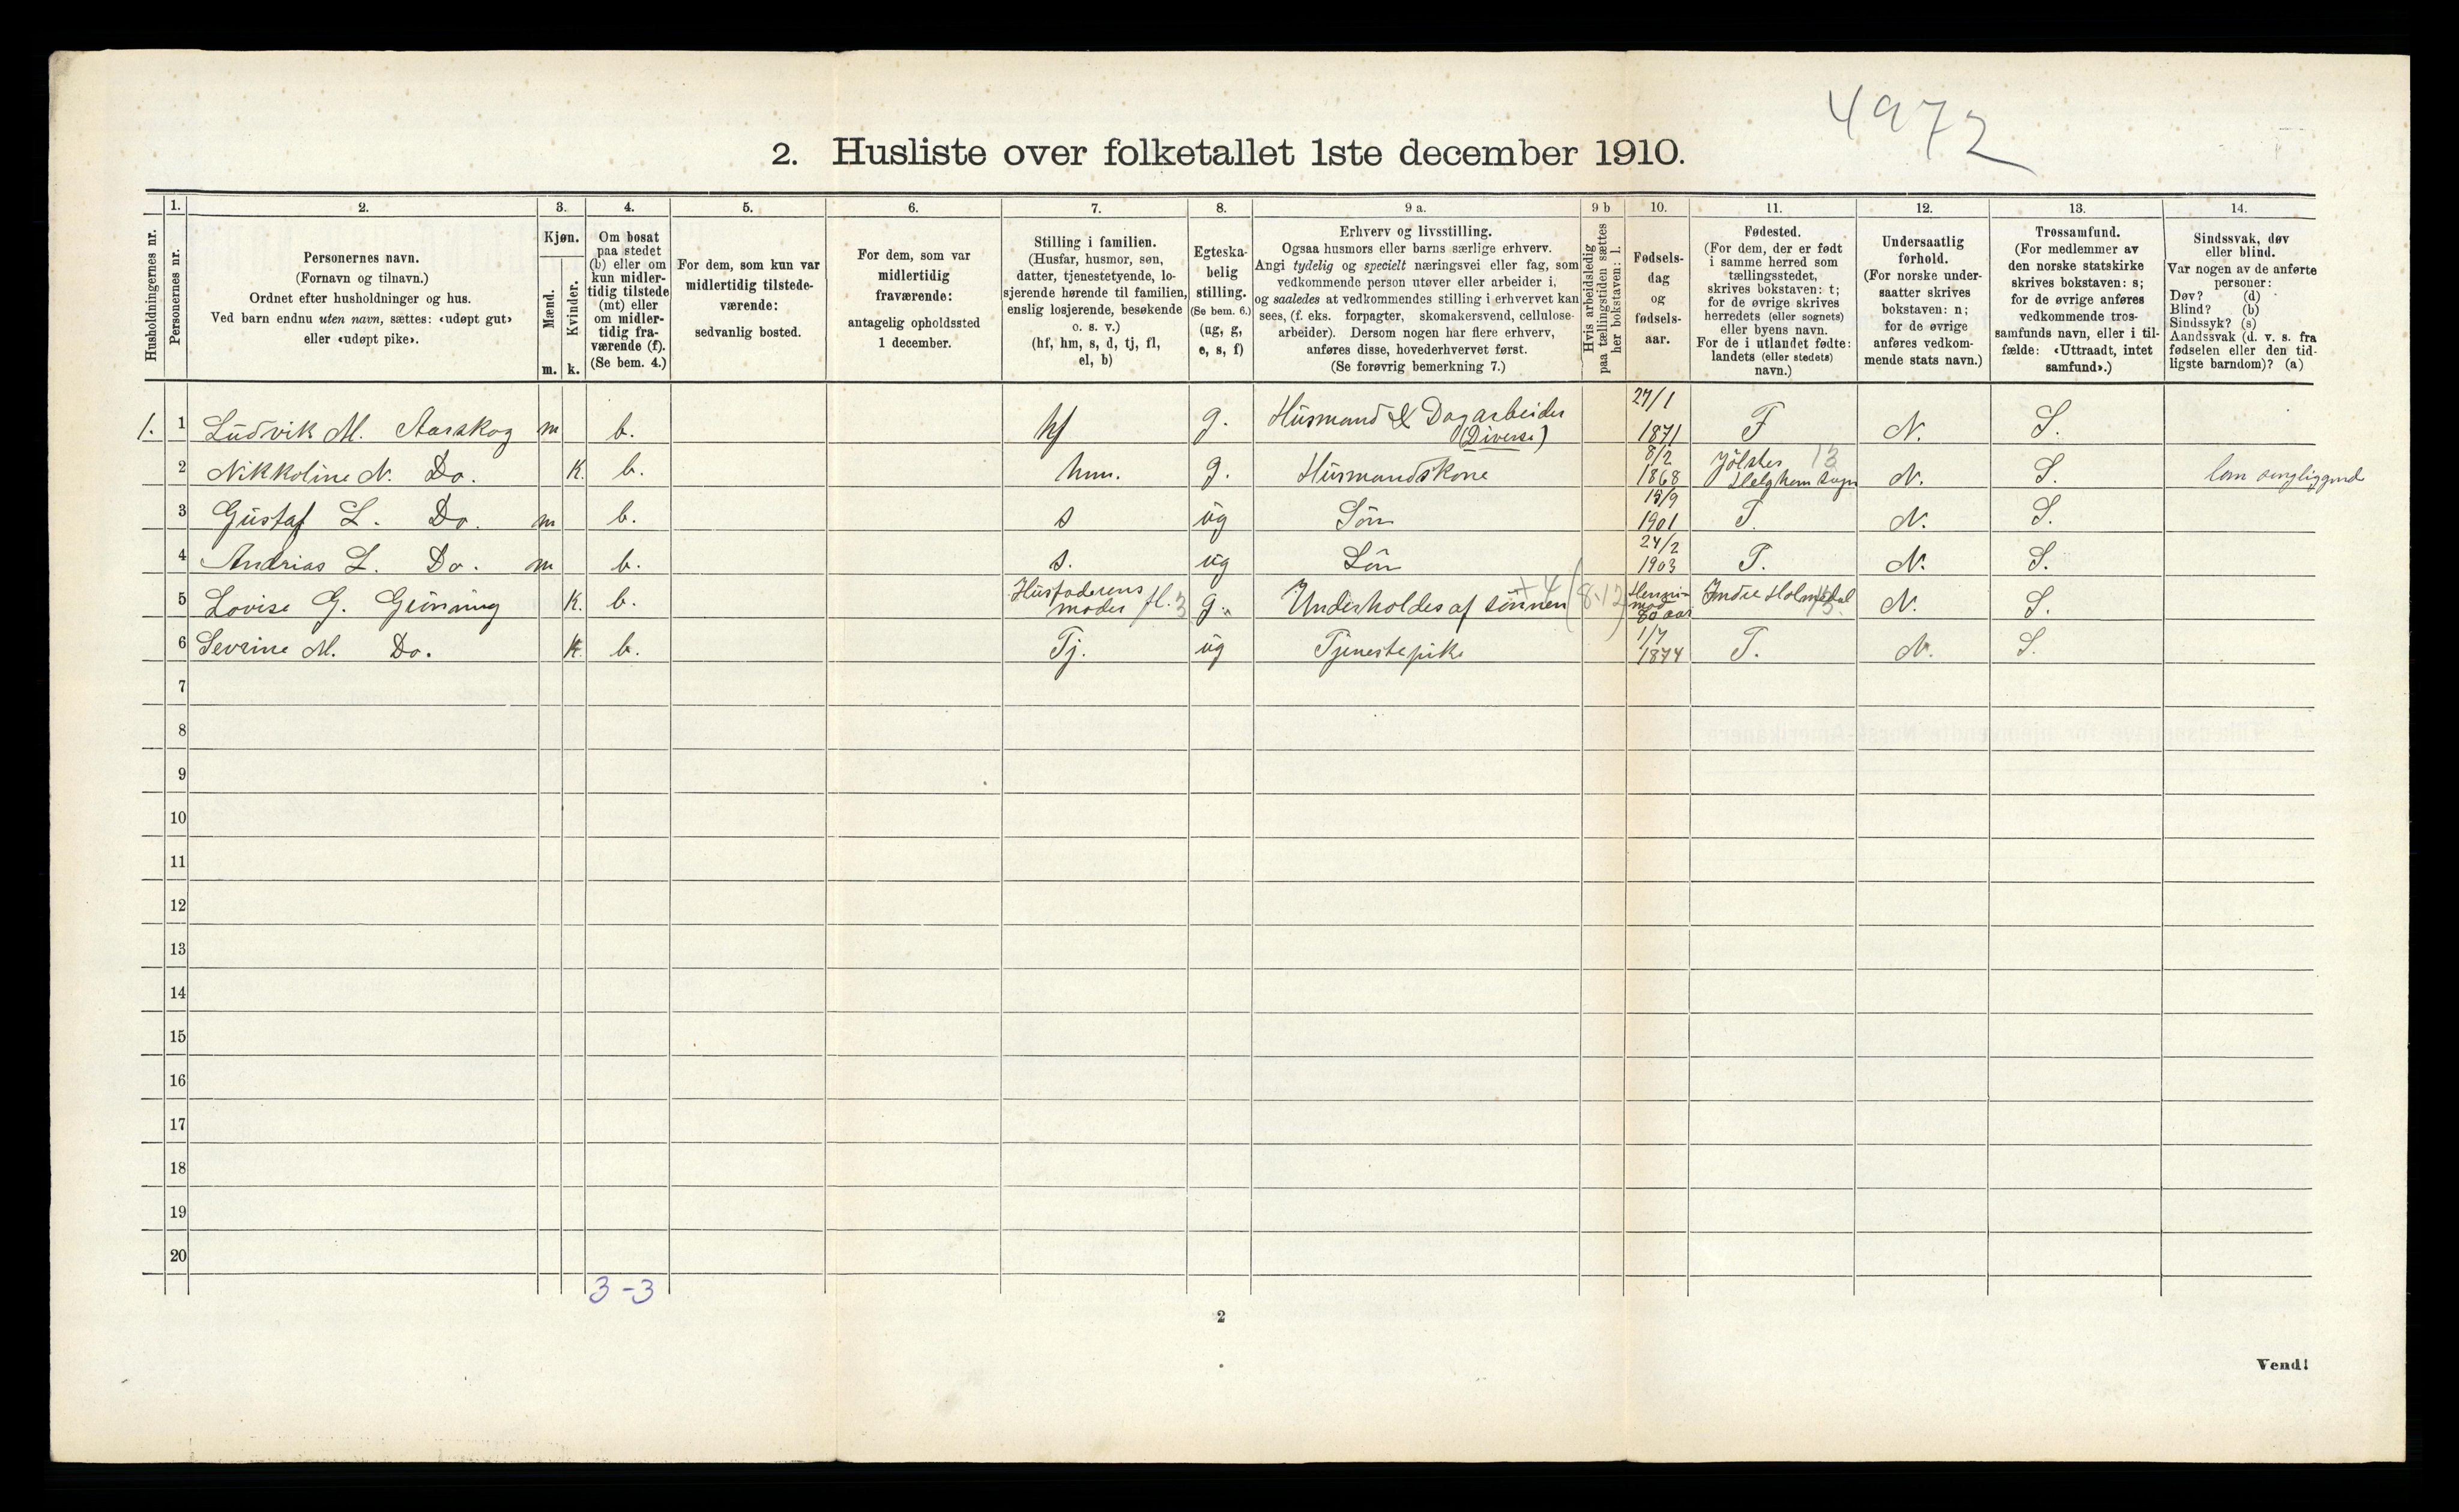 4972
2. Husliste over folketallet 1ste december 1910.
Husholdningernes nr.
1.
Personernes nr.
2.
Personernes navn.
(Fornavn og tilnavn.)
Ordnet efter husholdninger og hus.
Ved barn endnu uten navn, sættes: «udøpt gut»
eller «udøpt pike».
3.
Kjøn.
Mænd.
Kvinder.
m. k.
4.
Om bosat
paa stedet
(b) eller om
kun midler-
tidig tilstede
(mt) eller
om midler-
tidig fra-
værende (f).
(Se bem. 4.)
5.
For dem, som kun var
midlertidig tilstede-
værende:
sedvanlig bosted.
6.
For dem, som var
midlertidig
fraværende:
antagelig opholdssted
1 december.
7.
Stilling i familien.
(Husfar, husmor, søn,
datter, tjenestetyende, lo-
sjerende hørende til familien,
enslig losjerende, besøkende
o. s. v.)
(hf, hm, s, d, tj, fl,
el, b)
8.
Egteska-
belig
stilling.
(Se bem. 6.)
(ug, g,
e, s, f)
9 a.
Erhverv og livsstilling.
Ogsaa husmors eller barns særlige erhverv.
Angi tydelig og specielt næringsvei eller fag, som
vedkommende person utøver eller arbeider i,
og saaledes at vedkommendes stilling i erhvervet kan
sees, (f. eks. forpagter, skomakersvend, cellulose-
arbeider). Dersom nogen har flere erhverv,
anføres disse, hovederhvervet først.
(Se forøvrig bemerkning 7.)
9 b
Hvis arbeidsledig
paa tællingstiden sættes
her bokstaven: l.
10.
Fødsels-
dag
og
fødsels-
aar.
11.
Fødested.
(For dem, der er født
i samme herred som
tællingsstedet,
skrives bokstaven: t;
for de øvrige skrives
herredets (eller sognets)
eller byens navn.
For de i utlandet fødte:
landets (eller stedets)
navn.)
12.
Undersaatlig
forhold.
(For norske under-
saatter skrives
bokstaven: n;
for de øvrige
anføres vedkom-
mende stats navn.)
13.
Trossamfund.
(For medlemmer av
den norske statskirke
skrives bokstaven: s;
for de øvrige anføres
vedkommende tros-
samfunds navn, eller i til-
fælde: «Uttraadt, intet
samfund».)
14.
Sindssvak, døv
eller blind.
Var nogen av de anførte
personer:
Døv? (d)
Blind? (b)
Sindssyk? (s)
Aandssvak (d. v. s. fra
fødselen eller den tid-
ligste barndom)? (a)
1. 1 Ludvik M. Aarskog m b. hf g. Husmand & Dagarbeider (Diverse) 27/1 1871 T N. S.
2 Nikkoline N. Do. K. b. hm. g. Husmandskone 8/2 1868 Jölster Helghem sogn 13 N. S. lam sengliggend
3 Gustaf L. Do. m b. s ug Sön 15/9 1901 T. N. S.
4 Andrias L. Do. m b. s. ug Sön 24/2 1903 T. N. S.
5 Lovise G. Grönning K. b. Husfaderens moder fl. 3 g. Underholdes af sönnen +4 80 aar Indre Holmedal 13. N. S.
6 Sevrine M. Do. K. b. Tj. ug Tjenestepike 1/7 1874 T. N. S.
7
8
9
10
11
12
13
14
15
16
17
18
19
20
3-3
2
Vend!